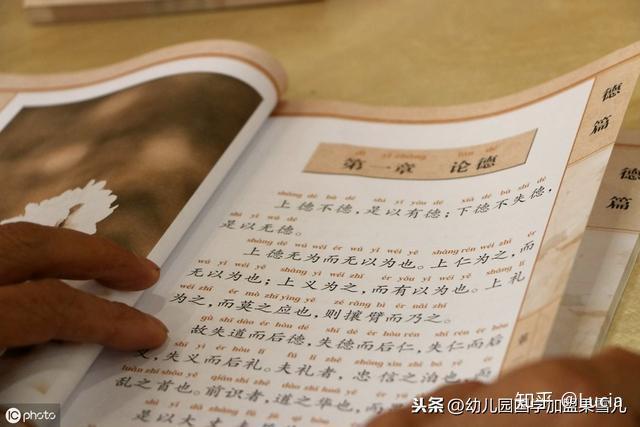 德篇
德篇
dì yī zhāng lùn dé
第一章 论德
shàng dé bù dé shì yǐ yǒu dé xià dé bù shī dé
上德不德,是以有德;下德不失德,
shì yǐ wú dé
是以无德。
shàng dé wú wéi ér wú yǐ wéi yě shàng rén wéi zhī ér
上德无为而无以为也。上仁为之,而
wú yǐ wéi yě shàng yì wéi zhī ér yǒu yǐ wéi yě shàng lǐ
无以为也;上义为之,而有以为也。上礼
wéi zhī ér mò zhī yìng yě zé rǎng bì ér nǎi zhī
为之,而莫之应也,则攘臂而乃之。
gù shī dào ér hòu dé shī dé ér hòu rén shī rén ér hòu
故失道而后德,失德而后仁,失仁而后
shī yì ér hòu lǐ fú lǐ zhě zhōng xìn zhī bó yě ér
义,失义而后礼。夫礼者,忠信之泊也,而
luàn zhī shǒu yě qián shí zhě dào zhī huá yě ér
乱之首也。前识者,道之华也,而
是以大丈夫
iC photo
知乎 @Lucia
头条 @幼儿园国学加盟果雪儿